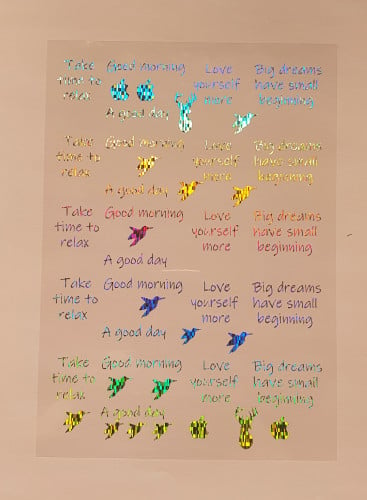 Take Good morning Love Big dreams
time to yourself have small
relax more beginning
A good day
Take Good morning Love Big dreams
time to yourself have small
relax more beginning
A good day
Take Good morning Love Big dreams
time to yourself have small
relax more beginning
A good day
Take Good morning Love Big dreams
time to yourself have small
relax more beginning
A good day
Take Good morning Love Big dreams
time to yourself have small
relax more beginning
A good day